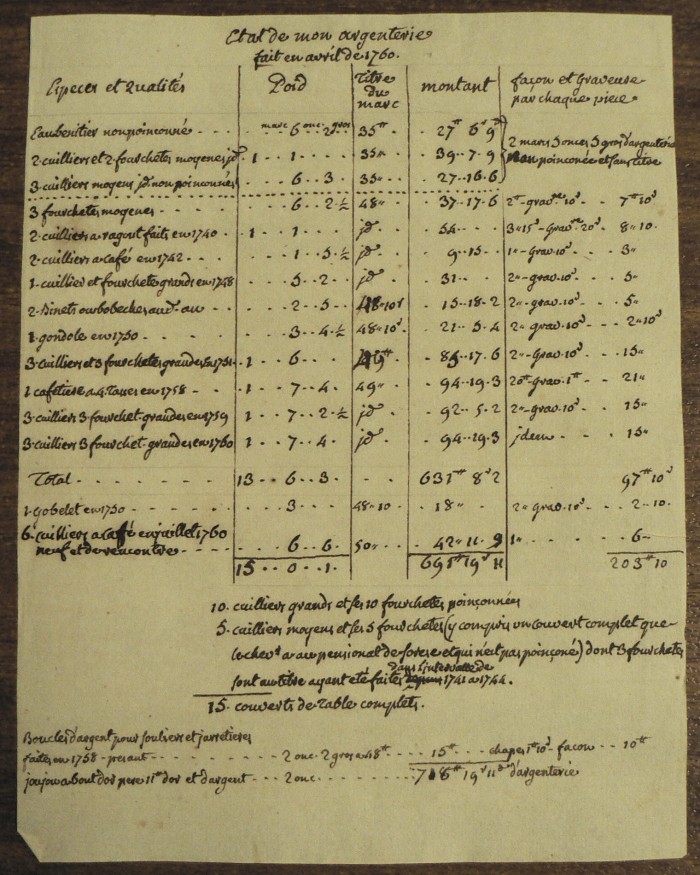 Etat de mon argenterie
fait en avril de 1760.
Especes et Qualités Poid Titre du marc montant façon et Graveuse par chaque piece
L'aubenitier non poinconné - - - - marc 6 onc - 2 gros 35 ₶ - 27 ₶ 6 s 9 d
2 cuilliers et 2 fourchetes moyenes jd 1 - - 1 - - - 35 ₶ - 39 - - 7 - 9
3 cuilliers moyens jd non poinconnés - - 6 - - 3 - 35 ₶ - 27 - 16 - 6
2 marcs 5 onces 5 gros d'argenterie
non poinconée et sans titre
3 fourchetes moyenes - - - - - 6 - - 2 ½ 48 ₶ - 37 - 17 - 6 2 ₶ - grav re 10 s - 7 ₶ 10 s
2 cuilliers a ragout faits en 1740 - 1 - - 1 - - - jd - 54 - - - 3 ₶ 15 s - Grav re 20 s - 8 ₶ 10 -
2 cuilliers a café en 1742 - - - - - 1 - 5 - ½ jd - 9 - 15 - - 1 ₶ - Grav 10 s - 3 ₶
1 cuillier et fourchete grands en 1758 - - 5 - - 2 - jd - 31 - - - 2 ₶ - grav 10 s - - 5 -
2 - - 5 - 48 ₶ 10 s - 15 - 18 - 2 2 ₶ - grav 10 s - - 5 ₶
1 gondole en 1750 - - - - 3 - - 4 - ½ 48 ₶ 10 s - 21 - - 5 - 4 2 ₶ grav 10 s - - 2 ₶ 10 s
3 cuilliers et 3 fourchetes grandes en 1751 - 1 - - 6 - - - 49 ₶ - 85 - 17 - 6 2 ₶ - Grav 10 s - - 15 ₶
1 cafetiere a 4 tasses en 1758 - - - 1 - - 7 - - 4 - 49 ₶ - 94 - 19 - 3 20 ₶ - grav 1 ₶ - - 21 ₶
3 cuilliers 3 fourchet grandes en 1759 1 - - 7 - - 2 - ½ jd - 92 - - 5 - 2 2 ₶ - grav 10 s - - 15 ₶
3 cuilliers 3 fourchet grandes en 1760 1 - - 7 - - 4 - jd - 94 - 19 - 3 jdem - - - 15 ₶
Total - - - - - - - - 13 - - 6 - - 3 - - - - 631 ₶ 8 s 2 97 ₶ 10 s
1 gobelet en 1750 - - - - - - 3 - - - 48 - 10 - 18 ₶ - 2 ₶ grav 10 s - - 2 - - 10
6 cuilliers a caffé en juillet 1760
neuf et de rencontre - - - - - 6 - - 6 - 50 ₶ - 42 - 11 - 9 1 ₶ - - - - - 6 -
15 - - 0 - - 1 - 691 ₶ 19 s 11 203 ₶ 10
10 - cuilliers grands et les 10 fourchetes poinçonnées
5 - cuilliers moyens et les 5 fourchetes (y compris un couvert complet que
le chev r a au pensional de sorese et qui n'est pas poinçoné) dont 3 fourchetes
dans l'intervalle de
sont au titre ayant été faites depuis 1741 a 1744.
15 - couverts de Table complets.
Boucles d'argent pour souliers et jarretieres
faites en 1758 - pesant - - - - - 2 onc - 2 gros a 48 ₶ - - - - 15 ₶ - - - chapes 1 ₶ 10 s - façon - - 10 ₶
d'or et d'argent - - - 2 onc - - - - - - - 718 ₶ 19 s 11 d d'argenterie